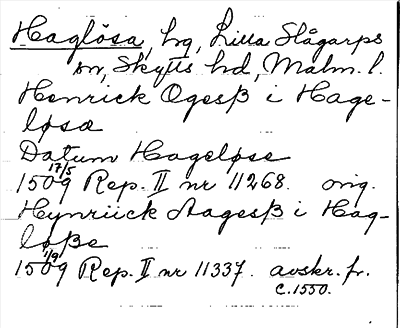 Haglösa, hg, Lilla Slågarps
sn, Skytts hd, Malm. l.
Henrick Ogesß i Hage-
løsæ
Datum Hageløse
17/5
1509 Rep. II nr 11268. orig.
Hynriick Aagesß i Hag-
løße
1/9
1509 Rep. II nr 11337. avskr. fr.
c. 1550.